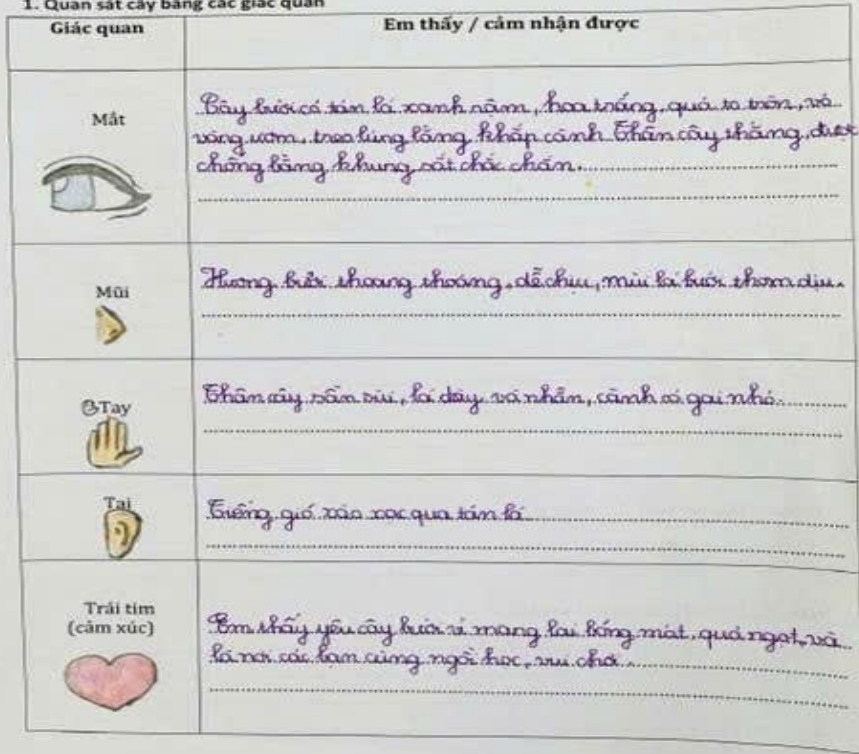 1. Quan sát cây bằng các giác quan
Giác quan
Em thấy / cảm nhận được
Mắt
Cây bưởi có tán lá xanh rậm, hoa trắng, quả to tròn, vỏ
vàng ươm, treo lủng lẳng khắp cành. Thân cây thẳng, được
chống bằng khung sắt chắc chắn.
Mũi
Hương bưởi thoang thoảng, dễ chịu, mùi lá bưởi thơm dịu.
Tay
Thân cây sần sùi, lá dày và nhẵn, cành có gai nhỏ.
Tai
Tiếng gió xào xạc qua tán lá
Trái tim
(cảm xúc)
Em thấy yêu cây bưởi vì mang lại bóng mát, quả ngọt, và
là nơi các bạn cùng ngồi học, vui chơi.